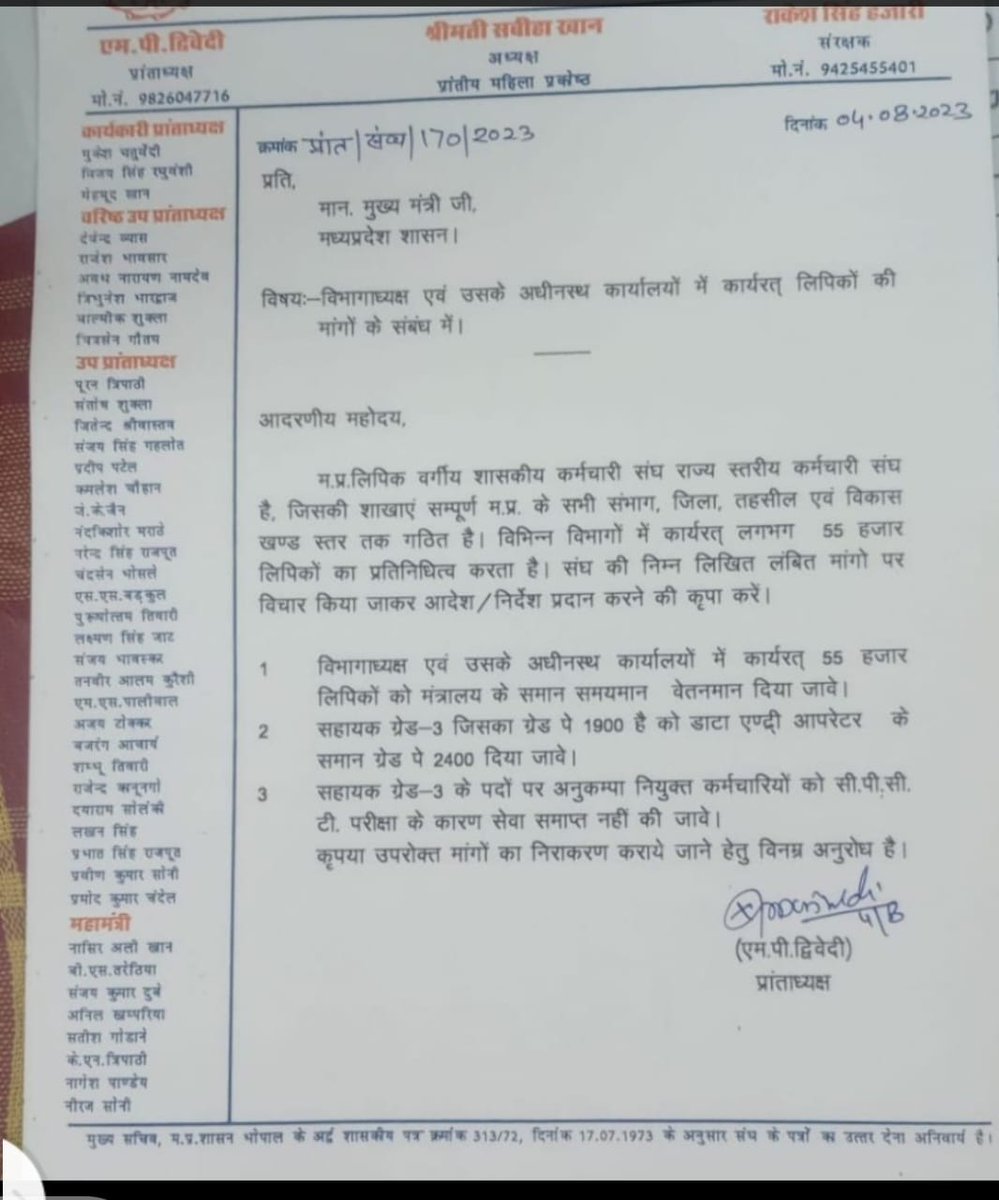 एम.पी.द्विवेदी
प्रांताध्यक्ष
मो.नं. 9826047716
श्रीमती सबीहा खान
अध्यक्ष
प्रांतीय महिला प्रकोष्ठ
राकेश सिंह हजारी
संरक्षक
मो.नं. 9425455401
कार्यकारी प्रांताध्यक्ष
मुकेश चतुर्वेदी
विजय सिंह रघुवंशी
मेहमूद खान
वरिष्ठ उप प्रांताध्यक्ष
देवेन्द्र व्यास
राजेश भावसार
अवध नारायण नामदेव
त्रिभुनेश भारद्वाज
वाल्मीक शुक्ला
चित्रसेन गौतम
उप प्रांताध्यक्ष
पूरन त्रिपाठी
संतोष शुक्ला
जितेन्द्र श्रीवास्तव
संजय सिंह गहलोत
प्रदीप पटेल
कमलेश चौहान
जे.के.जैन
नंदकिशोर मराठे
नरेन्द्र सिंह राजपूत
चंद्रसेन भोसले
एस.एस.बड़कुल
पुरूषोत्तम तिवारी
लक्ष्मण सिंह जाट
संजय भावस्कर
तनवीर आलम कुरैशी
एम.एस.पालीवाल
अजय टोक्कर
बजरंग आचार्य
शम्भू तिवारी
राजेन्द्र कानूनगो
दयाराम सोलंकी
लखन सिंह
प्रभात सिंह राजपूत
प्रवीण कुमार सोनी
प्रमोद कुमार चंदेल
महामंत्री
नासिर अली खान
बी.एस.तरेठिया
संजय कुमार दुबे
अनिल खम्परिया
सतीश गोडाने
के.एन.त्रिपाठी
नागेश पाण्डेय
नीरज सोनी
क्रमांक प्रांत/संघ/170/2023
दिनांक 04.08.2023
प्रति,
मान. मुख्य मंत्री जी,
मध्यप्रदेश शासन।
विषयः–विभागाध्यक्ष एवं उसके अधीनस्थ कार्यालयों में कार्यरत् लिपिकों की
मांगों के संबंध में।
आदरणीय महोदय,
म.प्र.लिपिक वर्गीय शासकीय कर्मचारी संघ राज्य स्तरीय कर्मचारी संघ
है, जिसकी शाखाएं सम्पूर्ण म.प्र. के सभी संभाग, जिला, तहसील एवं विकास
खण्ड स्तर तक गठित है। विभिन्न विभागों में कार्यरत् लगभग 55 हजार
लिपिकों का प्रतिनिधित्व करता है। संघ की निम्न लिखित लंबित मांगो पर
विचार किया जाकर आदेश/निर्देश प्रदान करने की कृपा करें।
1 विभागाध्यक्ष एवं उसके अधीनस्थ कार्यालयों में कार्यरत् 55 हजार
लिपिकों को मंत्रालय के समान समयमान वेतनमान दिया जावे।
2 सहायक ग्रेड–3 जिसका ग्रेड पे 1900 है को डाटा एण्ट्री आपरेटर के
समान ग्रेड पे 2400 दिया जावे।
3 सहायक ग्रेड–3 के पदों पर अनुकम्पा नियुक्त कर्मचारियों को सी.पी.सी.
टी. परीक्षा के कारण सेवा समाप्त नहीं की जावे।
कृपया उपरोक्त मांगों का निराकरण कराये जाने हेतु विनम्र अनुरोध है।
4/8
(एम.पी.द्विवेदी)
प्रांताध्यक्ष
मुख्य सचिव, म.प्र.शासन भोपाल के अर्द्ध शासकीय पत्र क्रमांक 313/72, दिनांक 17.07.1973 के अनुसार संघ के पत्रों का उत्तर देना अनिवार्य है।